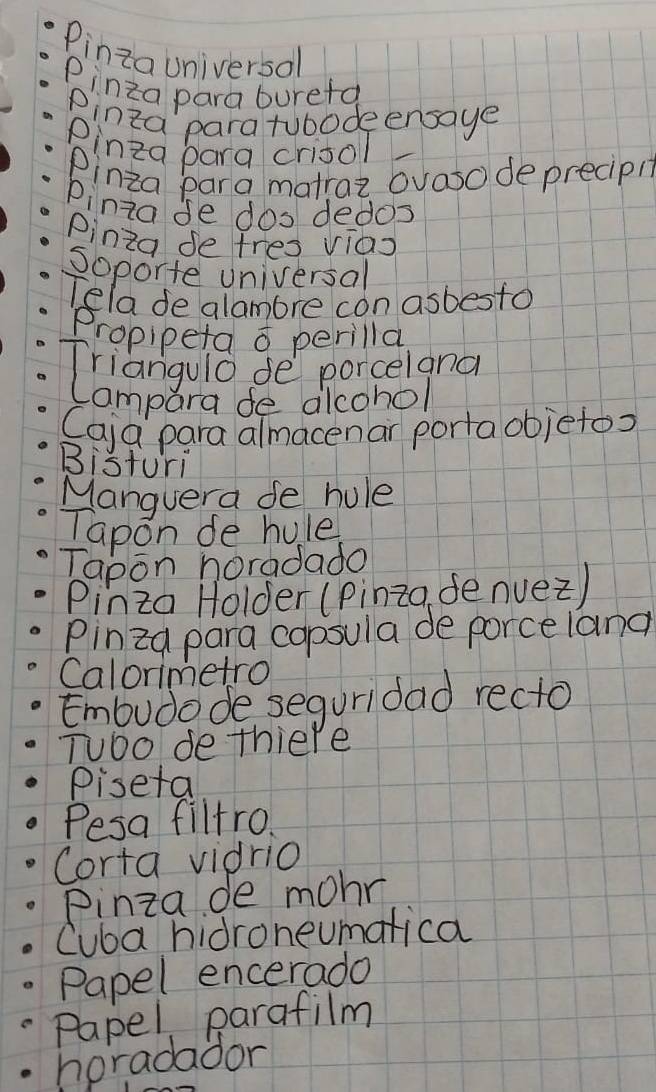 • Pinza universal
• Pinza para bureta
• Pinza para tubo de ensaye
• Pinza para crisol
• Pinza para matraz o vaso de precipit
• Pinza de dos dedos
• Pinza de tres vias
• Soporte universal
• Tela de alambre con asbesto
• Propipeta ó perilla
• Triangulo de porcelana
• Lampára de alcohol
• Caja para almacenar porta objetos
• Bisturi
• Manguera de hule
• Tapón de hule
• Tapón horadado
• Pinza Holder (Pinza de nuez)
• Pinza para capsula de porcelana
• Calorimetro
• Embudo de seguridad recto
• Tubo de thiele
• Piseta
• Pesa filtro.
• Corta vidrio
• Pinza de mohr
• Cuba hidroneumatica
• Papel encerado
• Papel parafilm
• horadador